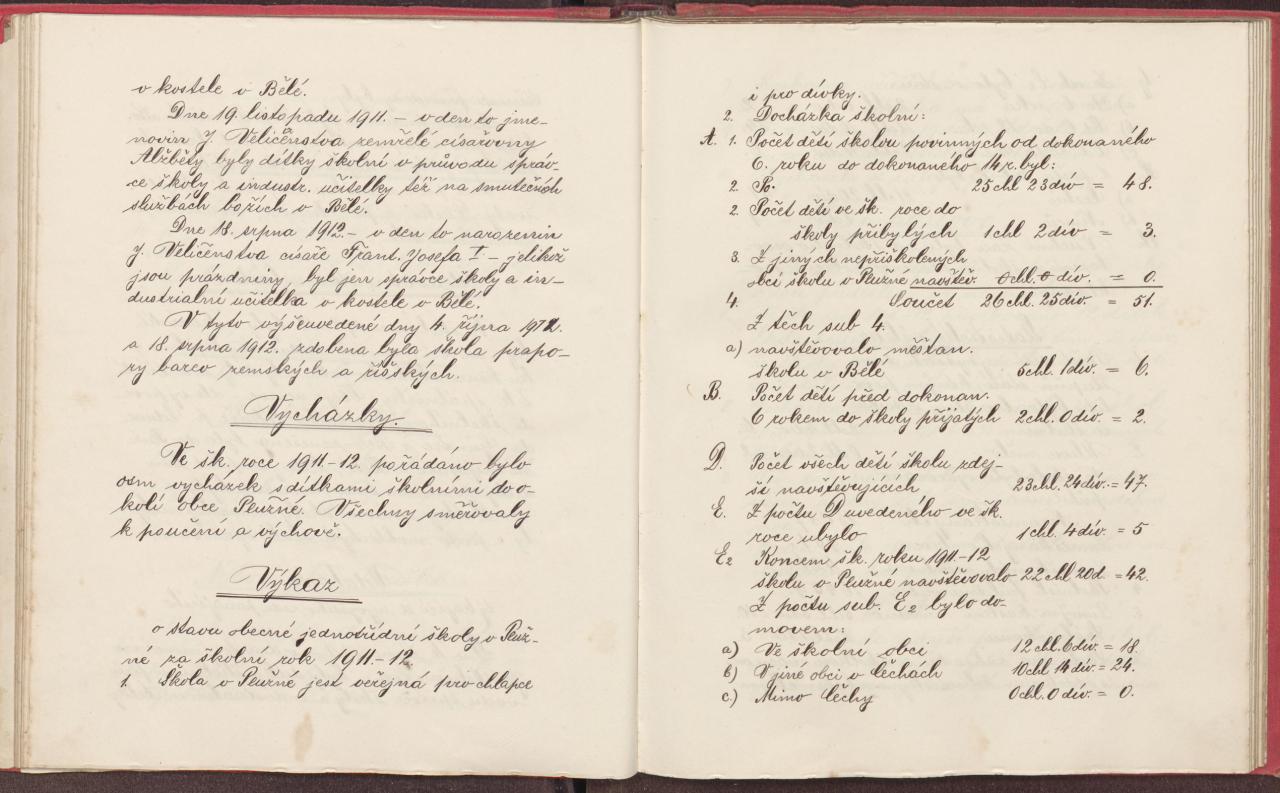 v kostele v Bělé.
Dne 19. listopadu 1911. – v den to jme-
novin J. Veličenstva zemřelé císařovny
Alžběty byly dítky školní v průvodu správ-
ce školy a industr. učitelky též na smutečních
službách božích v Bělé.
Dne 18. srpna 1912. – v den to narozenin
J. Veličenstva císaře Frant. Josefa I – jelikož
jsou prázdniny, byl jen správce školy a in-
dustrialní učitelka v kostele v Bělé.
V tyto výšeuvedené dny 4. října 1912.
a 18. srpna 1912. zdobena byla škola prapo-
ry barev zemských a říšských.
Vycházky.
Ve šk. roce 1911-12. pořádáno bylo
osm vycházek s dítkami školními do o-
kolí obce Plužné. Všechny směřovaly
k poučení a výchově.
Výkaz
o stavu obecné jednotřídní školy v Pluž-
né za školní rok 1911.-12.
1. Škola v Plužné jest veřejná pro chlapce
i pro dívky.
2. Docházka školní:
A. 1. Počet dětí školou povinných od dokonaného
6. roku do dokonaného 14 r. byl:
2. Po. 25 chl 23 dív = 48.
2. Počet dětí ve šk. roce do
školy přibylých 1 chl 2 dív = 3.
3. Z jiných nepřiškolených
obcí školu v Plužné navštěv. 0 chl. 0 dív. = 0.
4. Součet 26 chl. 25 dív. = 51.
Z těch sub 4.
a) navštěvovalo měšťan.
školu v Bělé 5 chl. 1 dív. = 6.
B. Počet dětí před dokonan.
6 rokem do školy přijatých 2 chl. 0 dív. = 2.
D. Počet všech dětí školu zdej-
ší navštěvujících 23 chl. 24 dív. = 47.
E. Z počtu D uvedeného ve šk.
roce ubylo 1 chl. 4 dív. = 5
E2 Koncem šk. roku 1911-12
školu v Plužné navštěvovalo 22 chl 20 d. = 42.
Z počtu sub. E2 bylo do-
movem:
a) Ve školní obci 12 chl. 6 dív. = 18.
b) V jiné obci v Čechách 10 chl 14 dív. = 24.
c.) Mimo Čechy 0 chl. 0 dív. = 0.